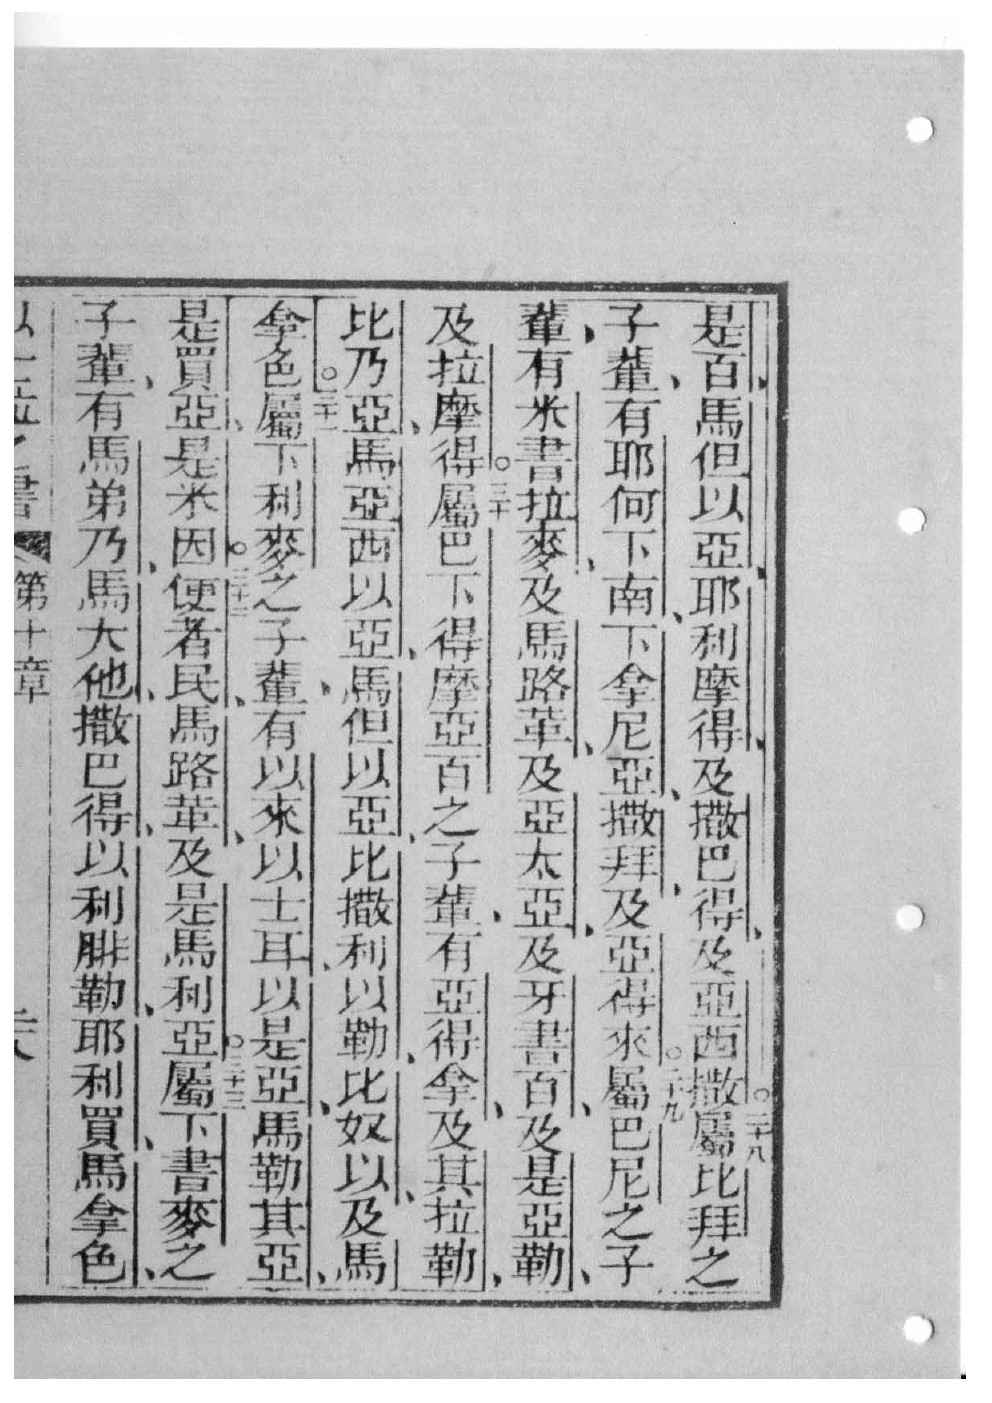 是百馬但以亞、耶利摩得、及撒巴得、及亞西撒○二十八屬比拜之
子輩、有耶何下南、下拿尼亞、撒拜、及亞得來○二十九屬巴尼之子
輩、有米書拉麥、及馬路革、及亞太亞、及牙書百、及是亞勒、
及拉摩得○三十屬巴下得摩亞百之子輩、有亞得拿、及其拉勒、
比乃亞、馬亞西以亞、馬但以亞、比撒利以勒、比奴以、及馬
拿色○三十一屬下利麥之子輩、有以來以士耳、以是亞、馬勒其亞、
是買亞、是米因○三十二便者民、馬路革、及是馬利亞○三十三屬下書麥之
子輩、有馬弟乃、馬大他、撒巴得、以利腓勒、耶利買、馬拿色、
以士拉之書 第十章 二十八